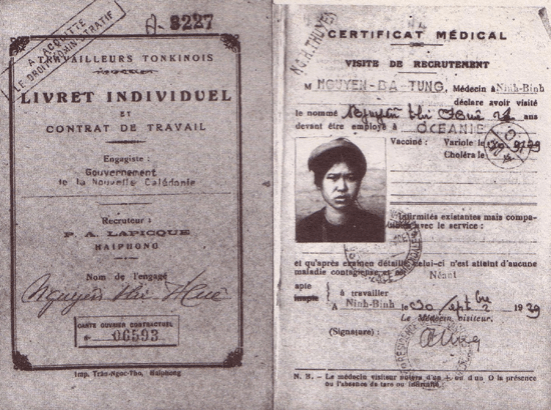 A-8227
A ACQUITTÉ
LE DROIT ADMINISTRATIF
TRAVAILLEURS TONKINOIS
LIVRET INDIVIDUEL
ET
CONTRAT DE TRAVAIL
Engagiste :
Gouvernement
de la Nouvelle Calédonie
Recruteur :
P. A. LAPICQUE
HAIPHONG
Nom de l'engagé
Nguyen thi Huê
CARTE OUVRIER CONTRACTUEL
06593
Imp. Trân-Ngoc-Tho, Haiphong
CERTIFICAT MÉDICAL
VISITE DE RECRUTEMENT
M NGUYEN-BA-TUNG, Médecin à Ninh-Binh
déclare avoir visité
le nommé Nguyên thi Huê 21 ans
devant être employé à OCEANIE
Vacciné : Variole le
Choléra le
Infirmités existantes mais compa-
tibles avec le service :
et qu'après examen détaillé celui-ci n'est atteint d'aucune
maladie contagieuse et est
Néant
apte
inapte à travailler
A Ninh-Binh le 30 septbre 1929
Le Médecin visiteur,
(Signature) :
N. B. — Le médecin visiteur notera d'un + ou d'un O la présence
ou l'absence de tare ou infirmité.